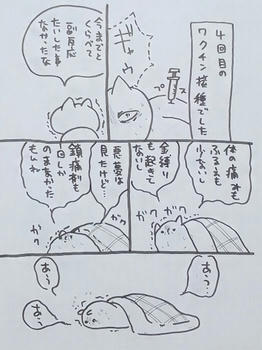 4回目の
ワクチン接種でした
プス
ギャウ
今までと
くらべて
副反応
たいした事
なかったな
体の痛みも
ふるえも
少ないし
ガク
ガク
金縛り
も起きて
ないし
悪夢は
見たけど…
鎮痛剤も
一回しか
のまなかった
もんね
ガク
ガク
あっ…
あぅ
あぅ